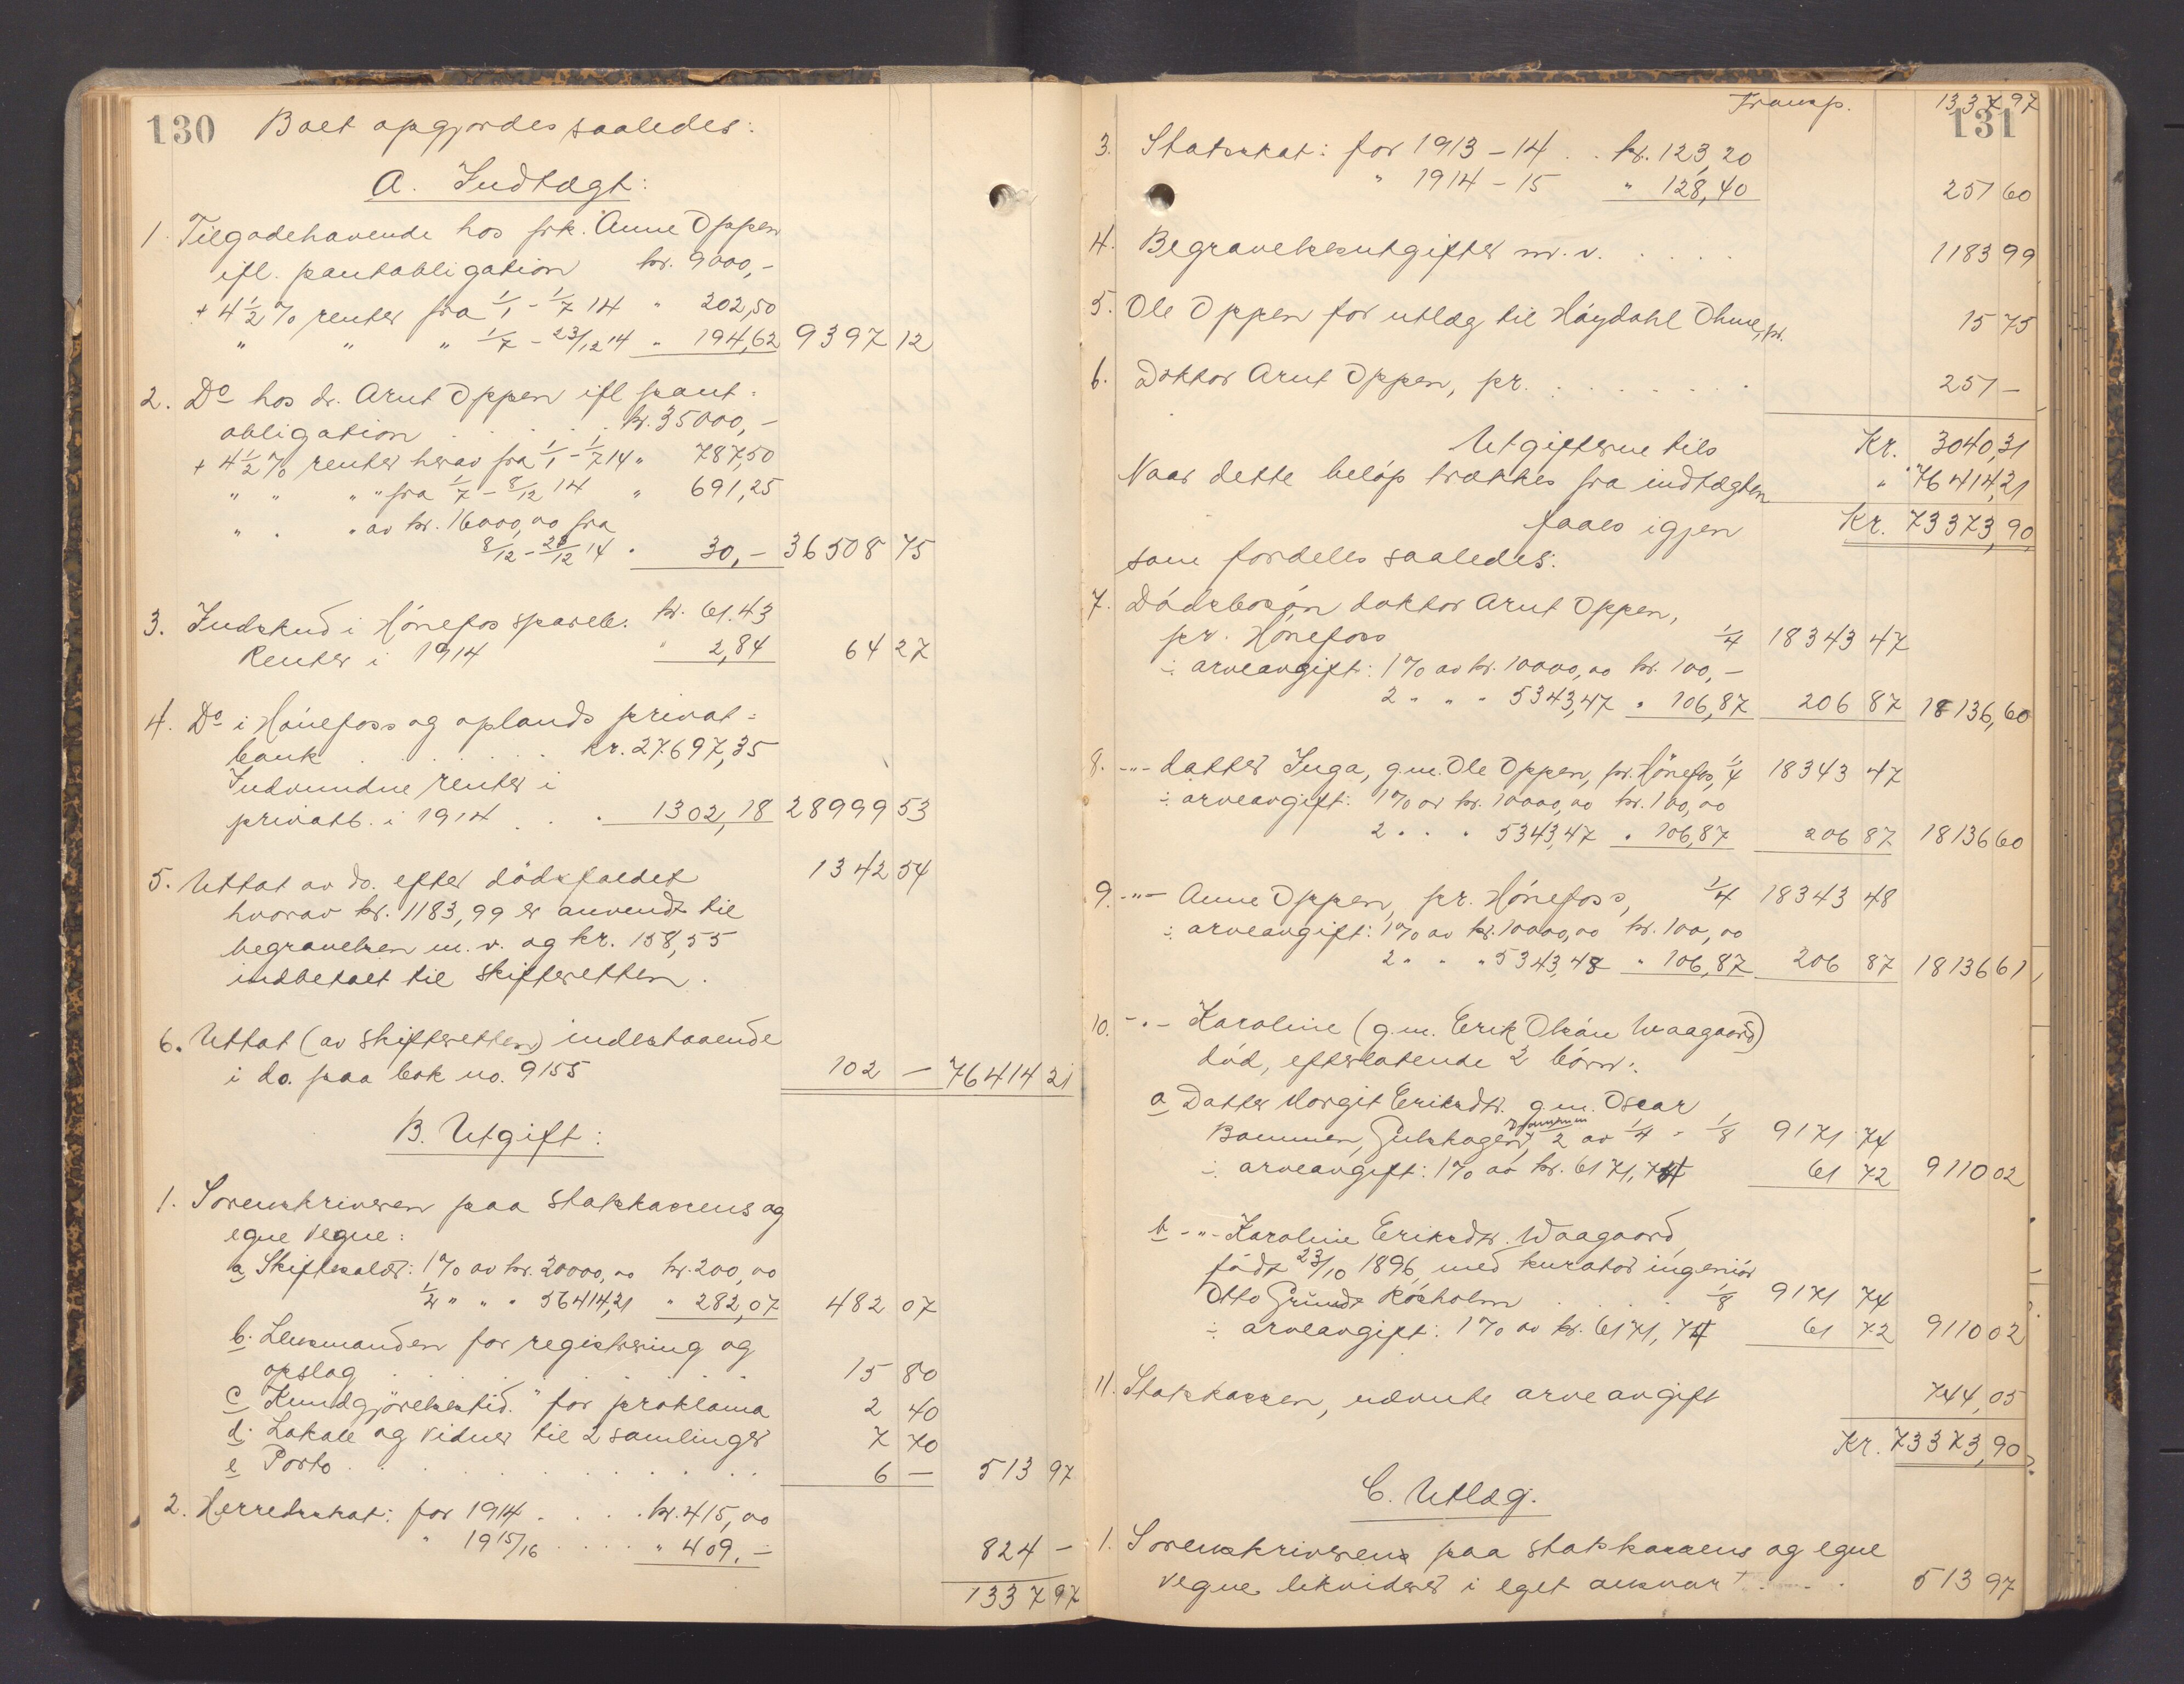 130
Boet opgjordes saaledes:
A. Indtægt:
1. Tilgodehavende hos frk. Anne Oppen
ifl. pantobligation kr. 9000,-
+ 4½% renter fra 1/1 - 1/7 14 " 202,50
" " " 1/7 - 23/12 14 " 194,62 9397 12
2. Do hos dr. Arnt Oppen ifl pant-
obligation . . . . . kr. 35000,-
+ 4½% renter herav fra 1/1 - 1/7 14 " 787,50
" " " " fra 1/7 - 8/12 14 " 691,25
" " " av kr. 16000,00 fra
8/12 - 23/12 14 " 30,- 36508 75
3. Indskud i Hönefos spareb. kr. 61.43
Renter i 1914 " 2,84 64 27
4. Do i Hönefoss og oplands privat-
bank . . . . . . kr. 27.697,35
Indvundne renter i
privatb. i 1914 . . " 1302,18 28999 53
5. Uttat av do. efter dödsfaldet 1342 54
hvorav kr. 1183,99 er anvendt til
begravelsen m. v. og kr. 158,55
indbetalt til skifteretten.
6. Uttat (av skifteretten) indestaaende
i do. paa bok no. 9155 102 — 76414 21
B. Utgift:
1. Sorenskriveren paa statskassens og
egne vegne:
a Skiftesalær: 1% av kr. 20000,00 kr. 200,00
½ " " " 56414,21 " 282,07 482 07
b. Lensmanden for registrering og
opslag . . . . . . . . . 15 80
c "Kundgjörelsestid." for proklama 2 40
d. Lokale og vidner til 2 samlinger 7 70
e Porto . . . . . . . . . . 6 — 513 97
2. Herredsskat: for 1914 . . . . kr. 415,00
" 1915/16 . . . . " 409.- 824 -
1337 97
131
Transp. 1337 97
3. Statsskat: for 1913 - 14 . . kr. 123,20
" 1914 - 15 " 128,40 251 60
4. Begravelsesutgifter m. v. . . . . 1183 99
5. Ole Oppen for utlæg til Höydahl Ohme, kr. 15 75
6. Doktor Arnt Oppen, pr. . . . . . . . . 251 -
Utgifterne tils Kr. 3040,31
Naar dette belöp trækkes fra indtægten " 76414,21
faaes igjen Kr. 73373,90
som fordeles saaledes:
7. Dödsbosön doktor Arnt Oppen,
pr. Hönefoss ¼ 18343 47
÷ arveavgift: 1% av kr. 10000,00 kr. 100,-
2 " " " 5343,47 " 106,87 206 87 18136,60
8. -"- datter Inga, g.m. Ole Oppen, pr. Hönefos, ¼ 18343 47
÷ arveavgift: 1% av kr. 10000,00 kr. 100,00
2 " " " 5343,47 " 106,87 206 87 18136 60
9. -"- Anne Oppen, pr. Hönefoss, ¼ 18343 48
÷ arveavgift: 1% av kr. 10000,00 kr. 100,00
2 " " " 5343,48 " 106,87 206 87 18136 61
10. -"- Karoline (g.m. Erik Olsön Waagaard)
död, efterlatende 2 börn:
a Datter Margit Eriksdtr. g.m. Oscar
Bommen, Gulskogen, ½ av ¼ = ⅛ 9171 74
÷ arveavgift: 1% av kr. 6171,74 61 72 9110 02
b -"- Karoline Eriksdtr. Waagaard,
födt 23/10 1896, med kurator ingeniör
Otto Grundt Rösholm . . . . ⅛ 9171 74
÷ arveavgift: 1% av kr. 6171,74 61 72 9110 02
11. Statskassen, nævnte arveavgift 744,05
Kr. 73373,90
C. Utlæg.
1. Sorenskriveren paa statskassens og egne
vegne likviderer i eget ansvar . . . . 513 97